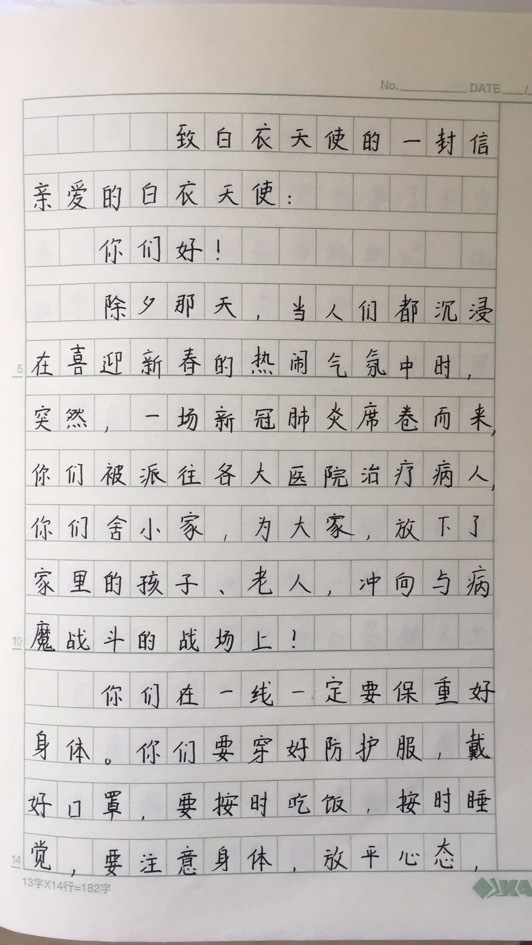 No. DATE
致白衣天使的一封信
亲爱的白衣天使:
你们好!
除夕那天,当人们都沉浸
5
在喜迎新春的热闹气氛中时,
突然,一场新冠肺炎席卷而来,
你们被派往各大医院治疗病人,
你们舍小家,为大家,放下了
家里的孩子、老人,冲向与病
10
魔战斗的战场上!
你们在一线一定要保重好
身体。你们要穿好防护服,戴
好口罩,要按时吃饭,按时睡
14
觉,要注意身体,放平心态,
13字X14行=182字